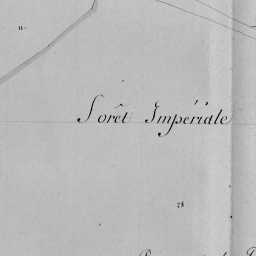 11.
Forêt Impériale
78